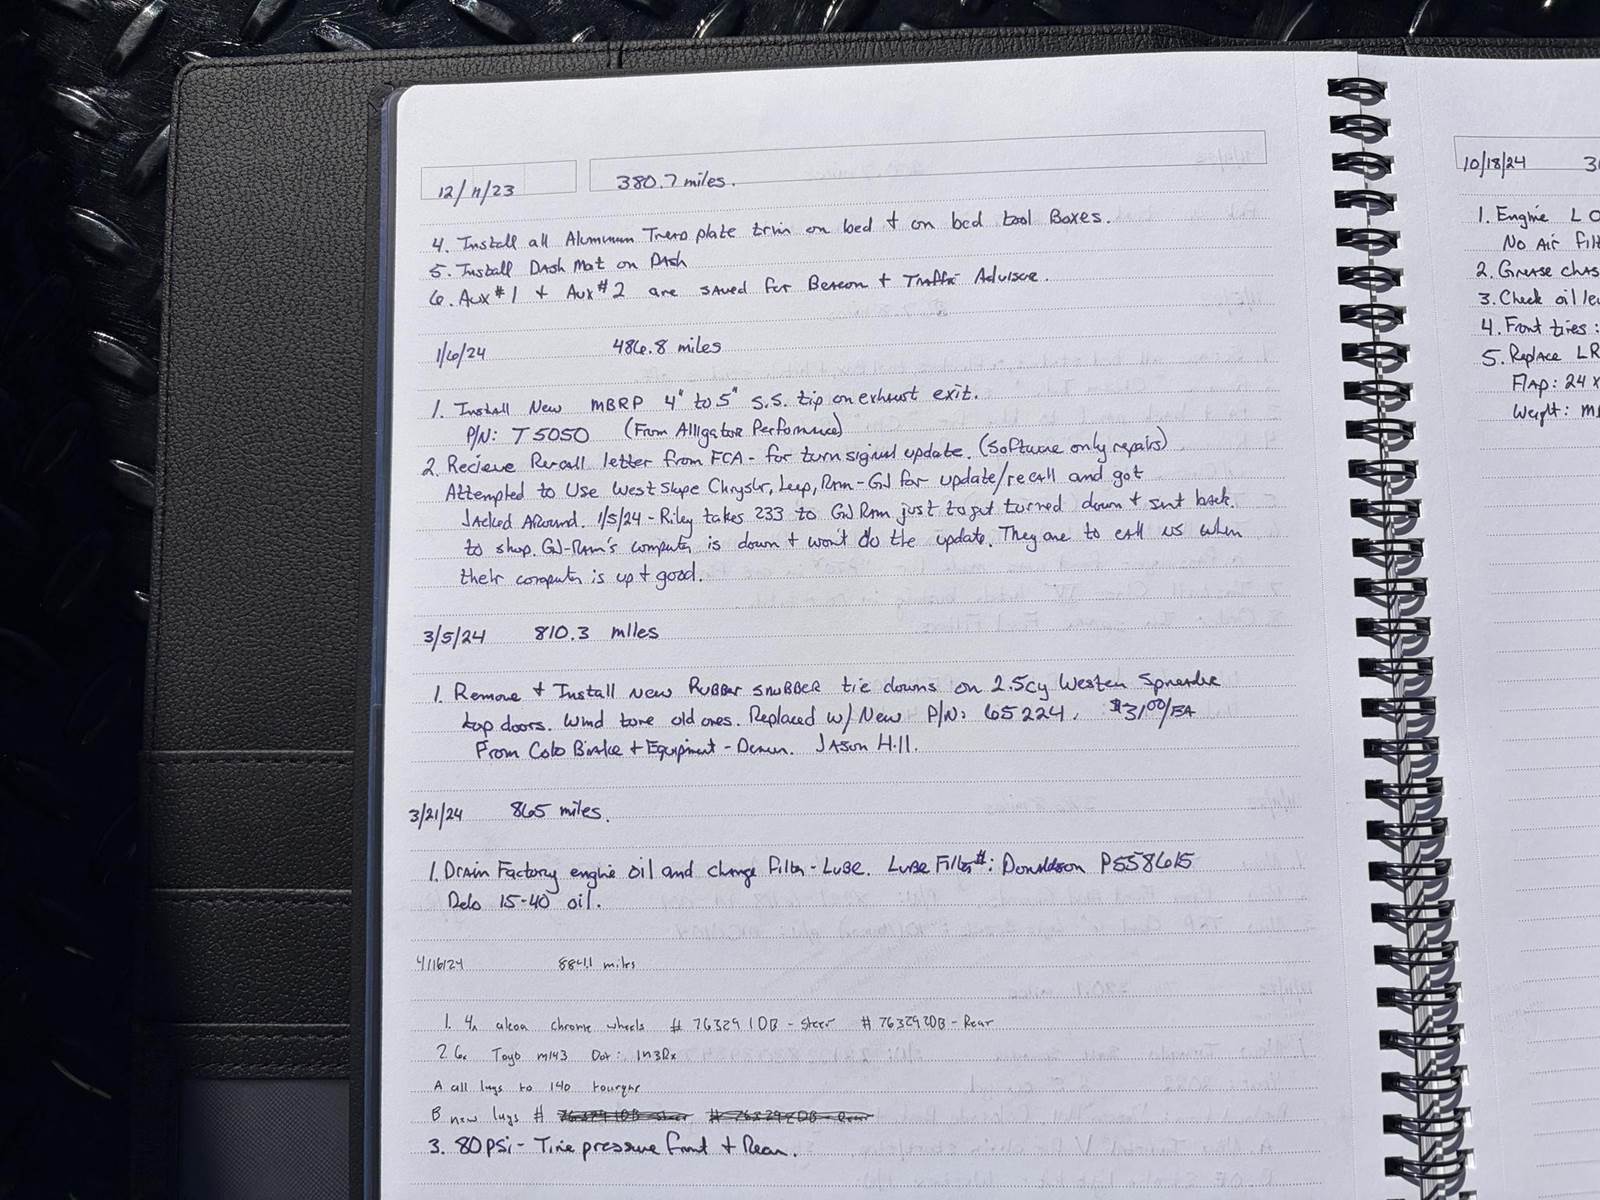 12/11/23 380.7 miles.
4. Install all Aluminum Tread plate trim on bed + on bed tool Boxes.
5. Install DAsh Mat on DAsh
6. Aux #1 + Aux #2 are saved for Beacon + Traffic Advisor.
1/6/24 486.8 miles
1. Install New MBRP 4" to 5" S.S. tip on exhaust exit.
P/N: T5050 (From Alligator Performance)
2. Recieve Recall letter from FCA - for turn signal update. (Software only repairs)
Attempted to Use West Slope Chrysler, Jeep, Ram - GJ for update/recall and got
JAcked ARound. 1/5/24 - Riley takes 233 to GJ Ram just to get turned down + sent back
to shop. GJ-Ram's computer is down + won't do the update. They are to call us when
their computer is up + good.
3/5/24 810.3 miles
1. Remove + Install New RUBBER SNUBBER tie downs on 2.5cy Western Spreader
top doors. Wind tore old ones. Replaced w/ New P/N: 65224. $31.00/EA
From Colo Brake + Equipment - Denver. JAson Hill.
3/21/24 865 miles.
1. Drain Factory engine oil and change filter - LUBE. LUBE Filter #: Donaldson P558615
Delo 15-40 oil.
4/16/24 884.1 miles
1. 4x alcoa chrome wheels # 763291DB - Steer # 763292DB - Rear
2 6x Toyo m143 Dot: 1N3Rx
A all lugs to 140 tourque
B new lugs # 763291DB - Steer # 763292DB - Rear
3. 80 PSi - Tire pressure front + Rear.
10/18/24
1. Engine L O
No Air Filt
2. Grease chas
3. Check oil le
4. Front tires:
5. Replace LR
Flap: 24 x
Weight: